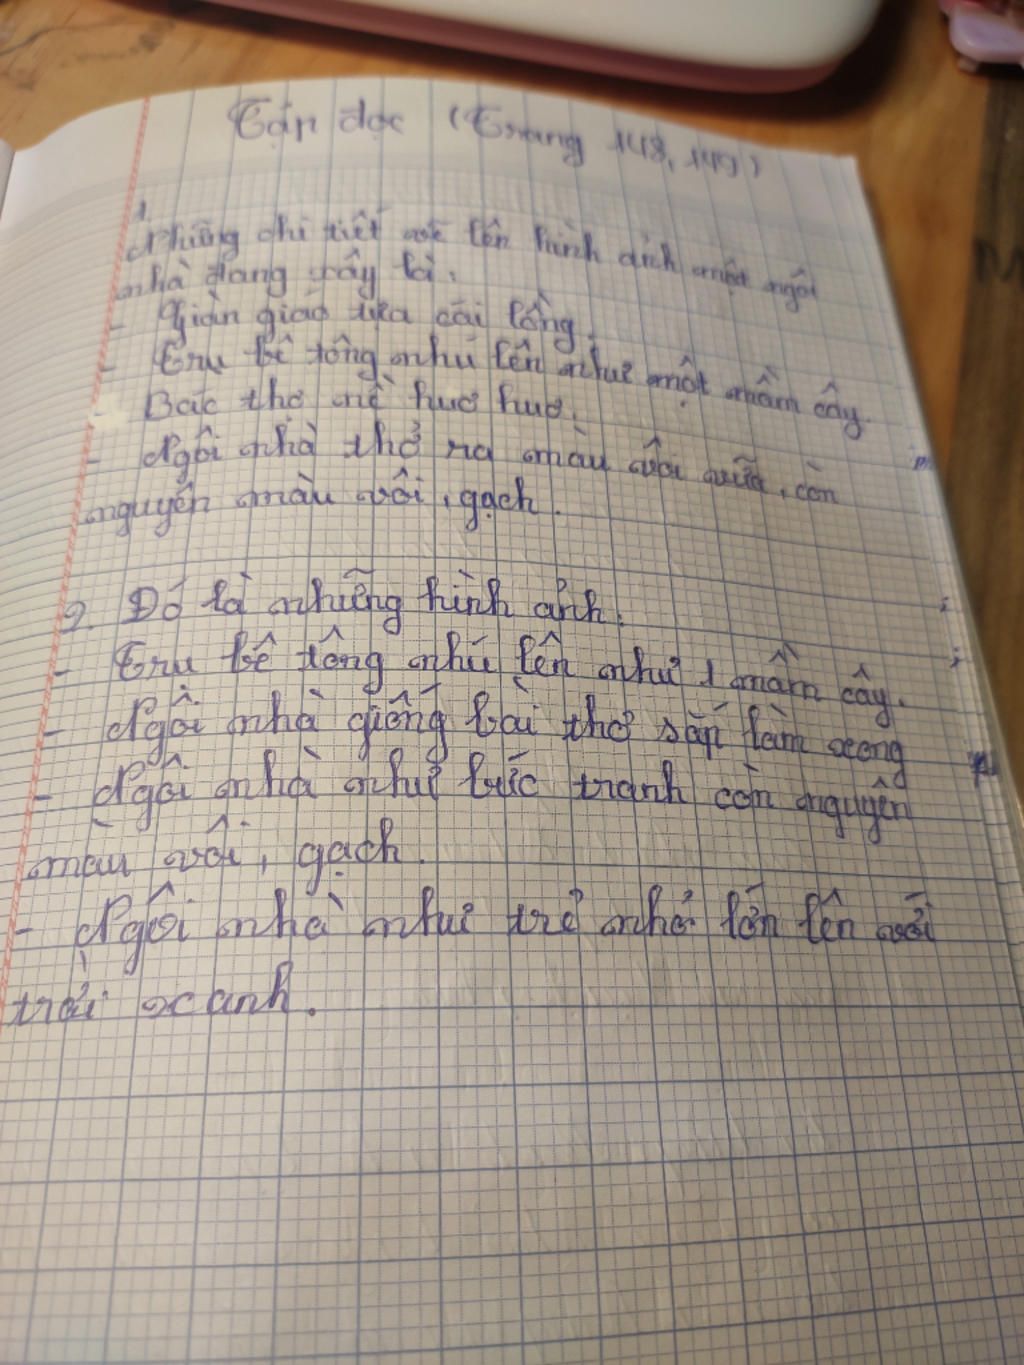 Tập đọc (Trang 148, 149)
1.
Những chi tiết vẽ lên hình ảnh một ngôi
nhà đang xây là:
- Giàn giáo tựa cái lồng.
- Trụ bê tông nhú lên như một mầm cây.
- Bác thợ nề huơ huơ.
- Ngôi nhà thở ra màu vôi vữa, còn
nguyên màu vôi, gạch.
2. Đó là những hình ảnh:
- Trụ bê tông nhú lên như 1 mầm cây.
- Ngôi nhà giống bài thơ sắp làm xong
- Ngôi nhà như bức tranh còn nguyên
màu vôi, gạch.
- Ngôi nhà như trẻ nhỏ lớn lên với
trời xanh.